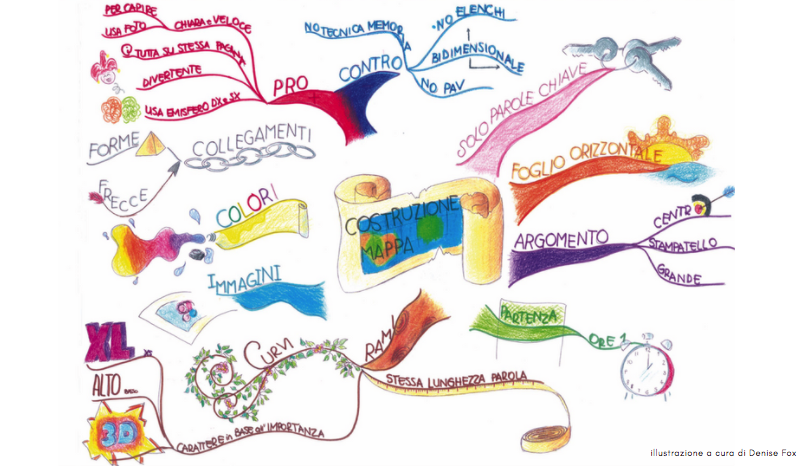 PER CAPIRE
USA FOTO
CHIARA e VELOCE
TUTTA SU STESSA PAGINA
DIVERTENTE
USA EMISFERO DX e SX
PRO
CONTRO
NO TECNICA MEMORIA
NO ELENCHI
BIDIMENSIONALE
NO PAV
SOLO PAROLE CHIAVE
FOGLIO ORIZZONTALE
ARGOMENTO
CENTRO
STAMPATELLO
GRANDE
PARTENZA
ORE 1
COSTRUZIONE
MAPPA
FORME
FRECCE
COLLEGAMENTI
COLORI
IMMAGINI
RAMI
CURVI
STESSA LUNGHEZZA PAROLA
CARATTERE in BASE all'IMPORTANZA
XL
XS
ALTO
3D
illustrazione a cura di Denise Fox